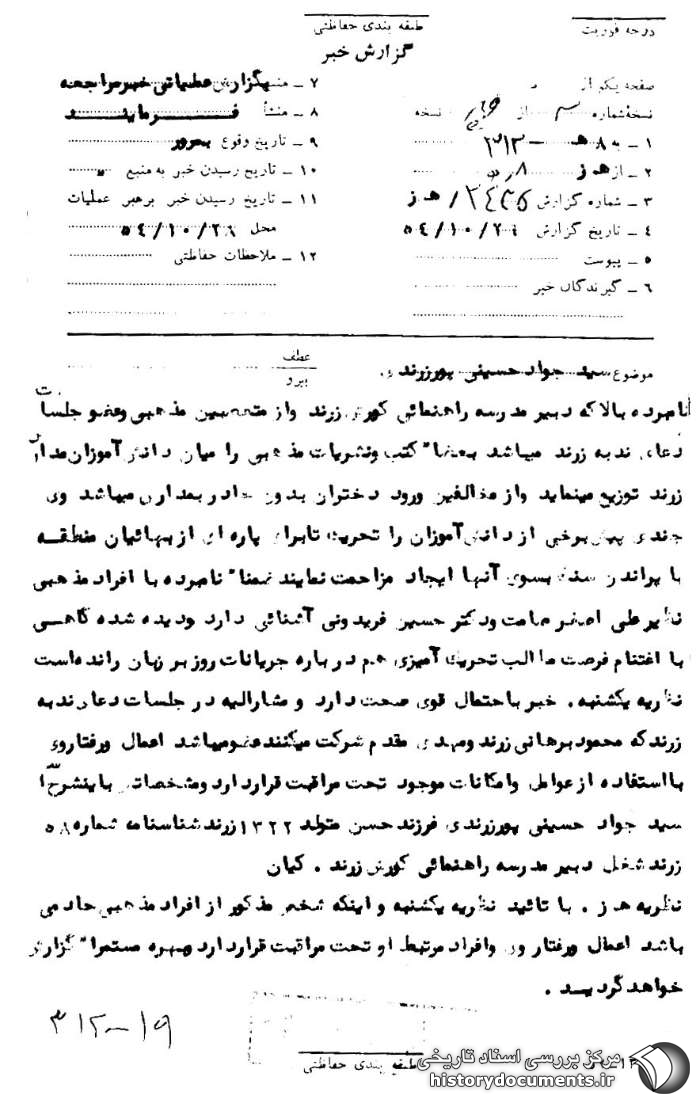 درجه فوریت
طبقه بندی حفاظتی
گزارش خبر
صفحه یکم از
نسخه شماره از نسخه
۱ ـ به ۸ هـ ۳۱۲
۲ ـ از هـ ز
۳ ـ شماره گزارش / هـ ز
۴ ـ تاریخ گزارش ۵۴/۱۰/۲۹
۵ ـ پیوست
۶ ـ گیرندگان خبر
۷ ـ بگزارش عملیاتی خبر مراجعه
۸ ـ منشأ فرمایند
۹ ـ تاریخ وقوع بمرور
۱۰ ـ تاریخ رسیدن خبر به منبع
۱۱ ـ تاریخ رسیدن خبر برهبر عملیات
محل ۵۴/۱۰/۲۸
۱۲ ـ ملاحظات حفاظتی
موضوع سید جواد حسینی پورزرندی
عطف
پیرو
نامبرده بالا که دبیر مدرسه راهنمائی کورش زرند واز متعصبین مذهبی وعضو جلسات
دعای ندبه زرند میباشد بعضا" کتب ونشریات مذهبی را میان دانش آموزان مدارس
زرند توزیع مینماید واز مخالفین ورود دختران بدون چادر بمدارس میباشد وی
چندی پیش برخی از دانش آموزان را تحریک تابرای پاره ای از بهائیان منطقه
با پراندن سنگ بسوی آنها ایجاد مزاحمت نمایند ضمنا" نامبرده با افراد مذهبی
نظیر علی اصغر صامت ودکتر حسین فریدونی آشنائی دارد ودیده شده گاهی
با اغتنام فرصت مطالب تحریک آمیزی هم درباره جریانات روز بر زبان رانده است
نظریه یکشنبه . خبر باحتمال قوی صحت دارد و مشارالیه در جلسات دعای ندبه
زرند که محمود برهانی زرند ومهدی مقدم شرکت میکنند عضو میباشد اعمال ورفتاروی
بااستفاده از عوامل وامکانات موجود تحت مراقبت قرار دارد ومشخصاتش باینشرح است
سید جواد حسینی پورزرندی فرزند حسن متولد ۱۳۲۲ زرند شناسنامه شماره ۵۸
زرند شغل دبیر مدرسه راهنمائی کورش زرند . کیان
نظریه هـ ز . با تائید نظریه یکشنبه و اینکه شخص مذکور از افراد مذهبی حاد می
باشد اعمال ورفتار وی وافراد مرتبط او تحت مراقبت قرار دارد وبهره مستمرا" گزارش
خواهد گردید .
۳۱۲-۱۹
طبقه بندی حفاظتی
مرکز بررسی اسناد تاریخی
historydocuments.ir